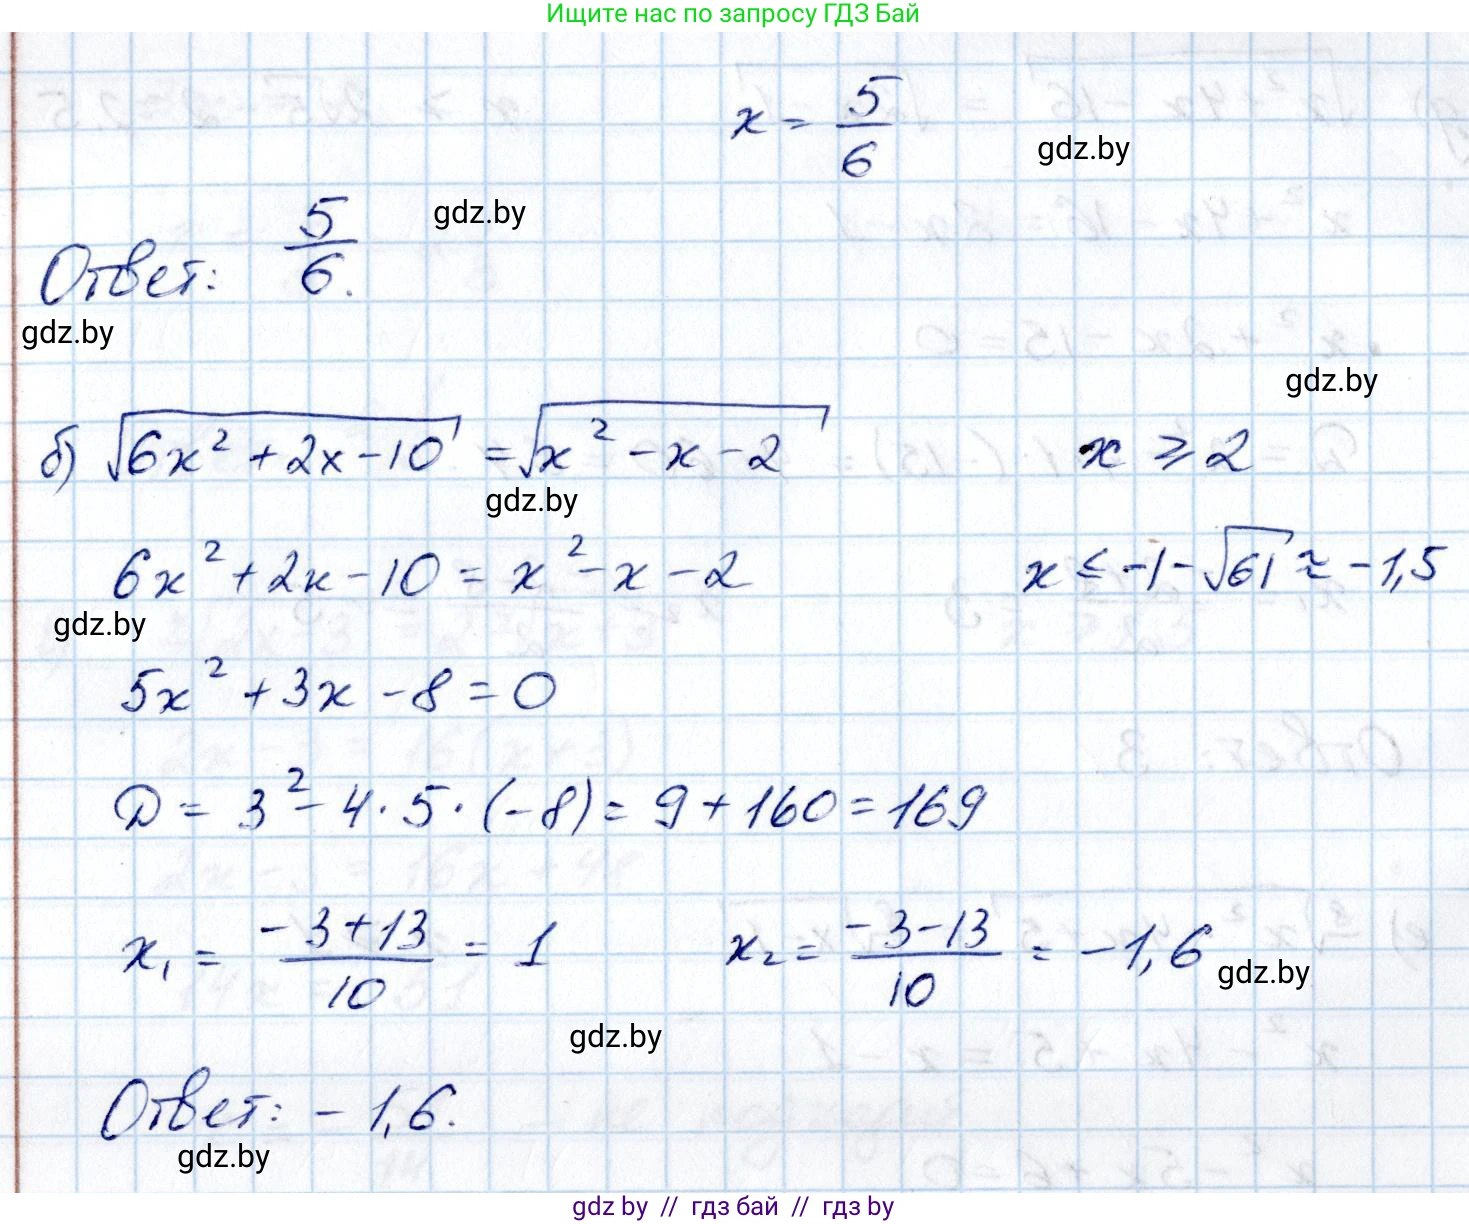 Ищите нас по запросу ГДЗ Бай
x = 5/6
gdz.by
gdz.by
Ответ: 5/6.
gdz.by
gdz.by
б) √(6x² + 2x - 10) = √(x² - x - 2)   x ⩾ 2
gdz.by
6x² + 2x - 10 = x² - x - 2   x ≤ -1 - √61 ≈ -1,5
gdz.by
5x² + 3x - 8 = 0
D = 3² - 4 · 5 · (-8) = 9 + 160 = 169
x₁ = (-3+13)/10 = 1   x₂ = (-3-13)/10 = -1,6
gdz.by
gdz.by
Ответ: - 1,6.
gdz.by
gdz by // гдз бай // гдз by